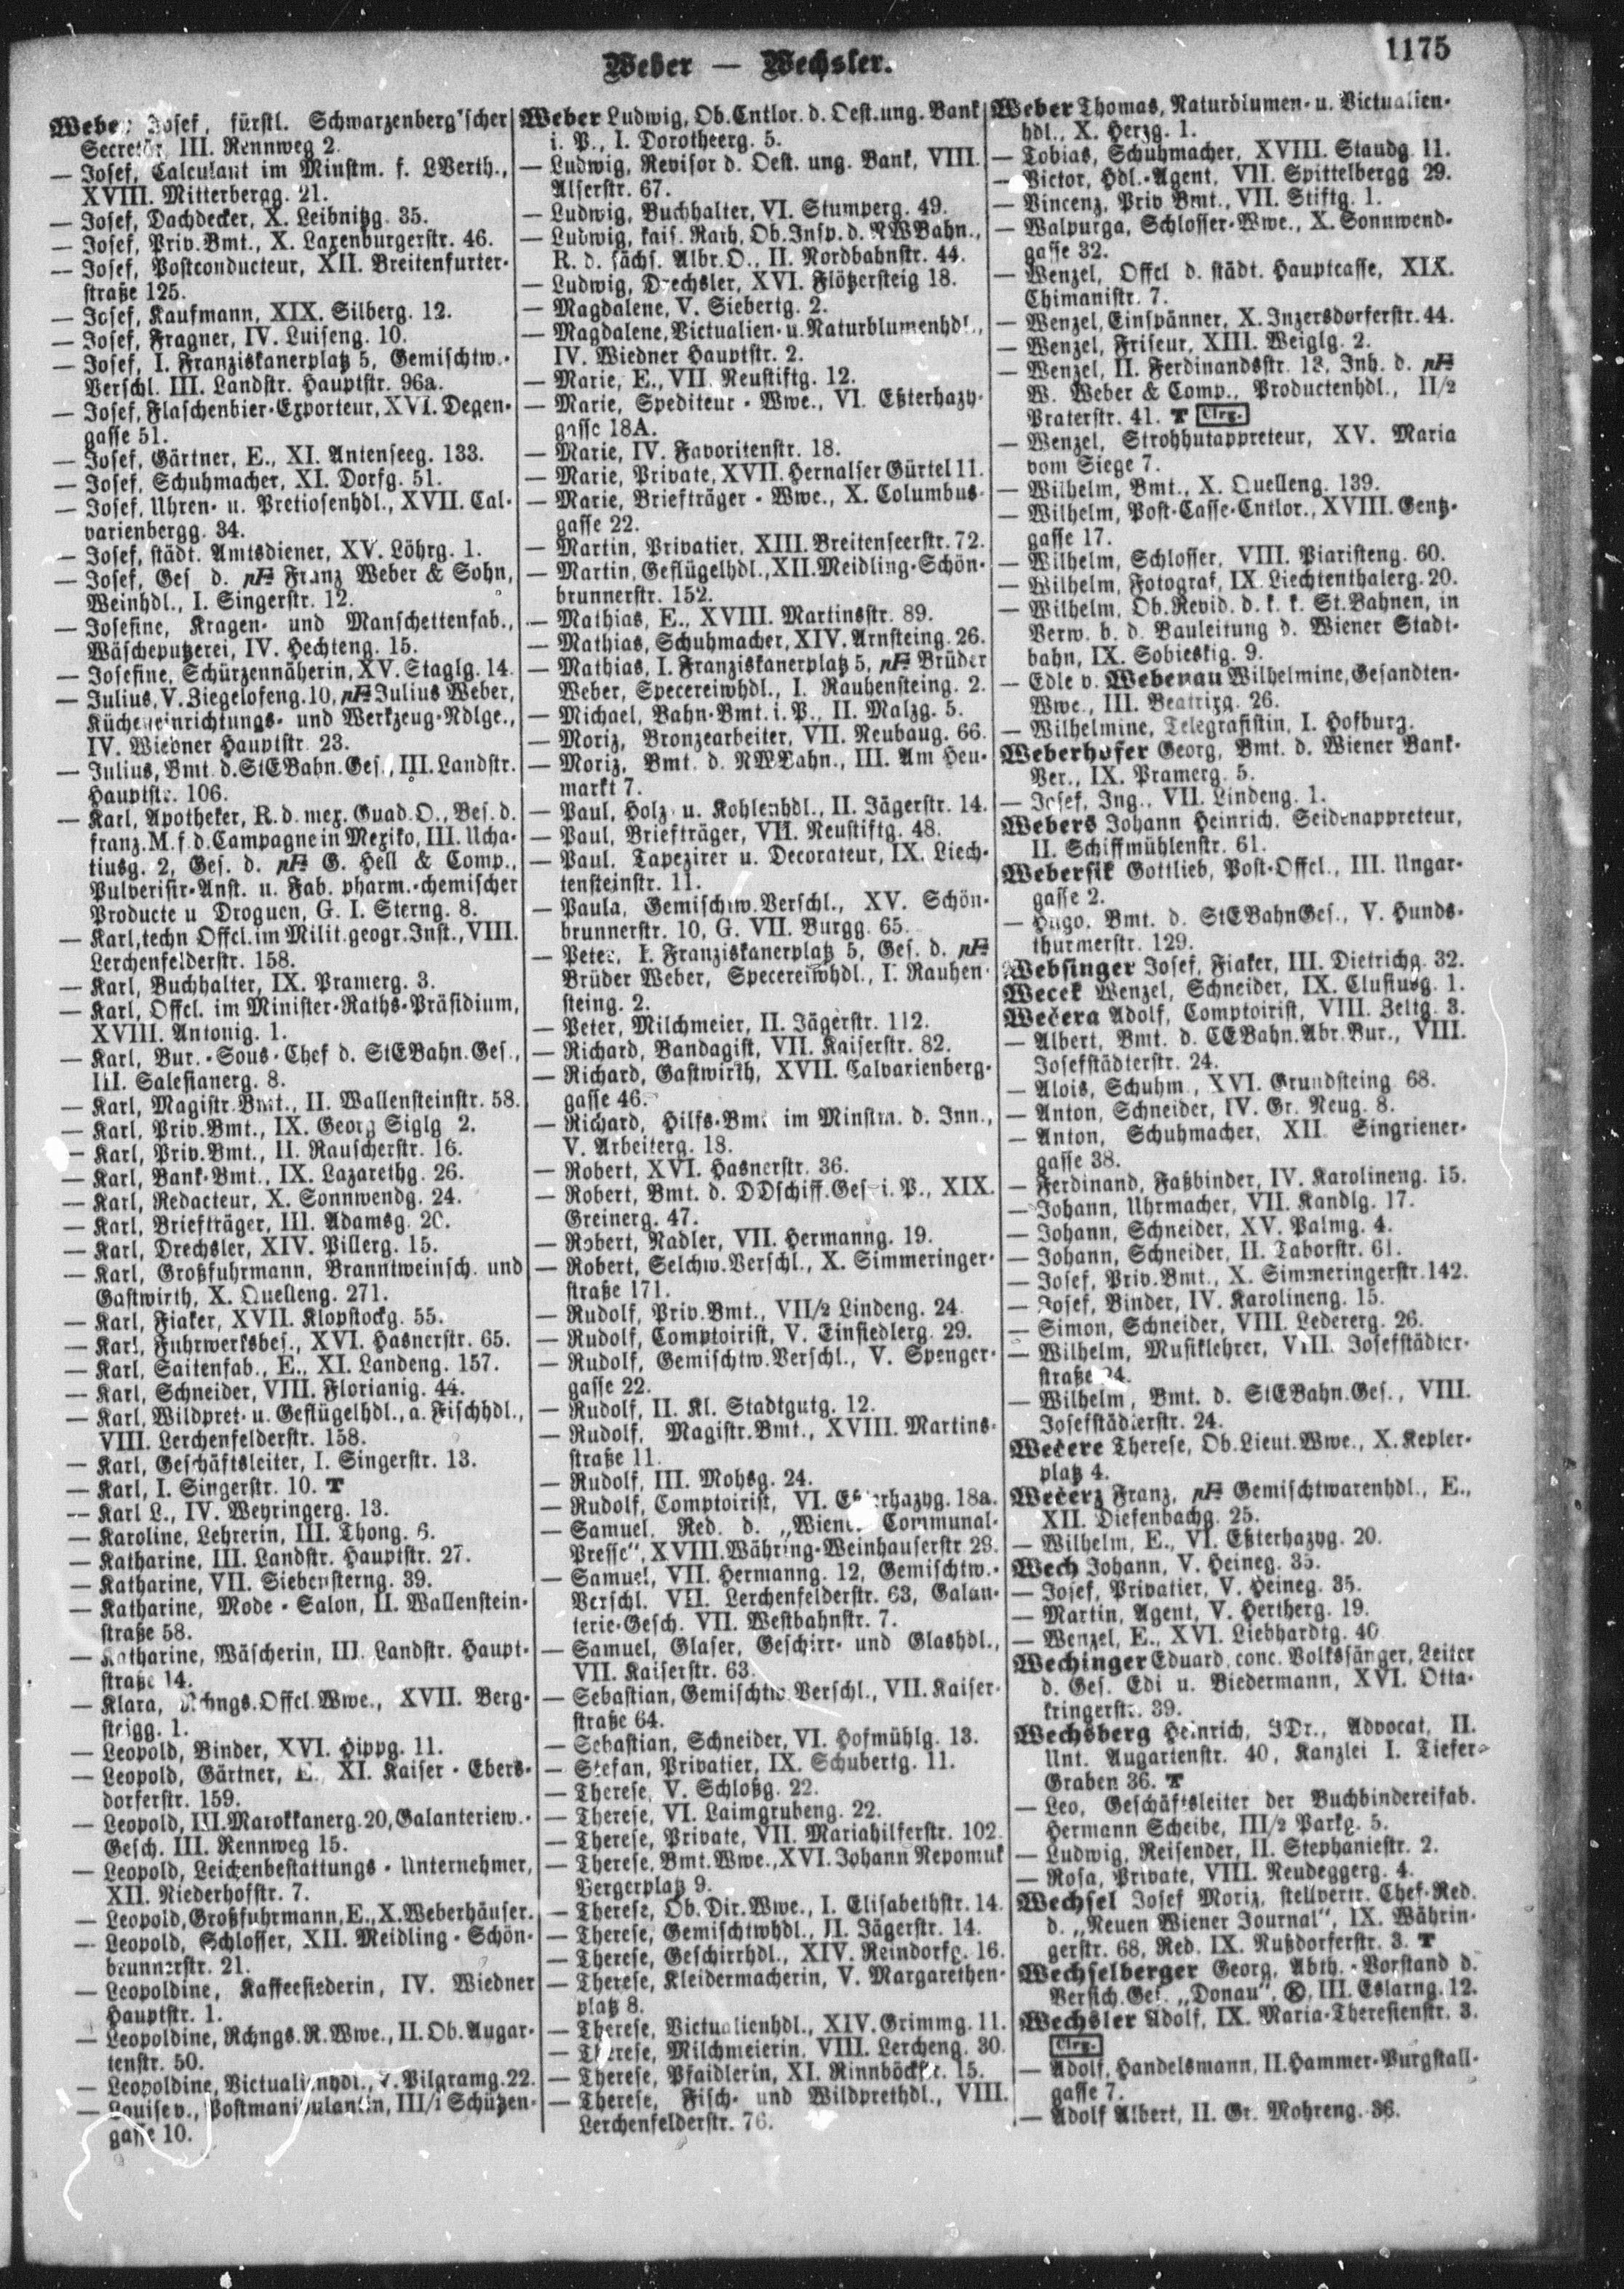 Weber — Wechsler.
1175
Weber Josef, fürstl. Schwarzenberg'scher
Secretär, III. Rennweg 2.
— Josef, Calculant im Minstm. f. LVerth.,
XVIII. Mitterbergg. 21.
— Josef, Dachdecker, X. Leibnitzg. 35.
— Josef, Priv.Bmt., X. Laxenburgerstr. 46.
— Josef, Postconducteur, XII. Breitenfurter-
straße 125.
— Josef, Kaufmann, XIX. Silberg. 12.
— Josef, Fragner, IV. Luiseng. 10.
— Josef, I. Franziskanerplatz 5, Gemischtw.-
Verschl. III. Landstr. Hauptstr. 96a.
— Josef, Flaschenbier-Exporteur, XVI. Degen-
gasse 51.
— Josef, Gärtner, E., XI. Antenseeg. 133.
— Josef, Schuhmacher, XI. Dorfg. 51.
— Josef, Uhren- u. Pretiosenhdl., XVII. Cal-
varienbergg. 34.
— Josef, städt. Amtsdiener, XV. Löhrg. 1.
— Josef, Ges d. pF Franz Weber & Sohn,
Weinhdl., I. Singerstr. 12.
— Josefine, Kragen- und Manschettenfab.,
Wäscheputzerei, IV. Hechteng. 15.
— Josefine, Schürzennäherin, XV. Staglg. 14.
— Julius, V. Ziegelofeng. 10, pF Julius Weber,
Kücheneinrichtungs- und Werkzeug-Ndlge.,
IV. Wiedner Hauptstr. 23.
— Julius, Bmt. d. StEBahn.Ges., III. Landstr.
Hauptstr. 106.
— Karl, Apotheker, R. d. mex. Guad. O., Bes. d.
franz. M. f. d. Campagne in Mexiko, III. Ucha-
tiusg. 2, Ges. d. pF G. Hell & Comp.,
Pulverisir-Anst. u. Fab. pharm.-chemischer
Producte u Droguen, G. I. Sterng. 8.
— Karl, techn Offcl. im Milit. geogr. Inst., VIII.
Lerchenfelderstr. 158.
— Karl, Buchhalter, IX. Pramerg. 3.
— Karl, Offcl. im Minister-Raths-Präsidium,
XVIII. Antonig. 1.
— Karl, Bur.-Sous-Chef d. StEBahn.Ges.,
III. Salesianerg. 8.
— Karl, Magistr.Bmt., II. Wallensteinstr. 58.
— Karl, Priv.Bmt., IX. Georg Siglg 2.
— Karl, Priv.Bmt., II. Rauscherstr. 16.
— Karl, Bank-Bmt., IX. Lazarethg. 26.
— Karl, Redacteur, X. Sonnwendg. 24.
— Karl, Briefträger, III. Adamsg. 20.
— Karl, Drechsler, XIV. Pillerg. 15.
— Karl, Großfuhrmann, Branntweinsch. und
Gastwirth, X. Quelleng. 271.
— Karl, Fiaker, XVII. Klopstockg. 55.
— Karl, Fuhrwerksbes., XVI. Hasnerstr. 65.
— Karl, Saitenfab., E., XI. Landeng. 157.
— Karl, Schneider, VIII. Florianig. 44.
— Karl, Wildpret- u. Geflügelhdl., a. Fischhdl.,
VIII. Lerchenfelderstr. 158.
— Karl, Geschäftsleiter, I. Singerstr. 13.
— Karl, I. Singerstr. 10. T
— Karl L., IV. Weyringerg. 13.
— Karoline, Lehrerin, III. Thong. 6.
— Katharine, III. Landstr. Hauptstr. 27.
— Katharine, VII. Siebensterng. 39.
— Katharine, Mode-Salon, II. Wallenstein-
straße 58.
— Katharine, Wäscherin, III. Landstr. Haupt-
straße 14.
— Klara, Rchngs.Offcl.Wwe., XVII. Berg-
steigg. 1.
— Leopold, Binder, XVI. Hippg. 11.
— Leopold, Gärtner, E., XI. Kaiser-Ebers-
dorferstr. 159.
— Leopold, III. Marokkanerg. 20, Galanteriew.-
Gesch. III. Rennweg 15.
— Leopold, Leichenbestattungs-Unternehmer,
XII. Niederhofstr. 7.
— Leopold, Großfuhrmann, E., X. Weberhäuser.
— Leopold, Schlosser, XII. Meidling-Schön-
brunnerstr. 21.
— Leopoldine, Kaffeesiederin, IV. Wiedner
Hauptstr. 1.
— Leopoldine, Rchngs.R.Wwe., II. Ob. Augar-
tenstr. 50.
— Leopoldine, Victualienhdl., V. Pilgramg. 22.
— Louise v., Postmanipulantin, III/1 Schützen-
gasse 10.
Weber Ludwig, Ob.Cntlor. d. Oest.ung. Bank
i. P., I. Dorotheerg. 5.
— Ludwig, Revisor d. Oest. ung. Bank, VIII.
Alserstr. 67.
— Ludwig, Buchhalter, VI. Stumperg. 49.
— Ludwig, kais. Rath, Ob.Insp. d. NWBahn.,
R. d. sächs. Albr.O., II. Nordbahnstr. 44.
— Ludwig, Drechsler, XVI. Flötzersteig 18.
— Magdalene, V. Siebertg. 2.
— Magdalene, Victualien- u. Naturblumenhdl.,
IV. Wiedner Hauptstr. 2.
— Marie, E., VII. Neustiftg. 12.
— Marie, Spediteur-Wwe., VI. Eßterhazy-
gasse 18A.
— Marie, IV. Favoritenstr. 18.
— Marie, Private, XVII. Hernalser Gürtel 11.
— Marie, Briefträger-Wwe., X. Columbus-
gasse 22.
— Martin, Privatier, XIII. Breitenseerstr. 72.
— Martin, Geflügelhdl., XII. Meidling-Schön-
brunnerstr. 152.
— Mathias, E., XVIII. Martinsstr. 89.
— Mathias, Schuhmacher, XIV. Arnsteing. 26.
— Mathias, I. Franziskanerplatz 5, pF Brüder
Weber, Specereiwhdl., I. Rauhensteing. 2.
— Michael, Bahn-Bmt. i. P., II. Malzg. 5.
— Moriz, Bronzearbeiter, VII. Neubaug. 66.
— Moriz, Bmt. d. NWBahn., III. Am Heu-
markt 7.
— Paul, Holz- u. Kohlenhdl., II. Jägerstr. 14.
— Paul, Briefträger, VII. Neustiftg. 48.
— Paul, Tapezirer u. Decorateur, IX. Liech-
tensteinstr. 11.
— Paula, Gemischtw.Verschl., XV. Schön-
brunnerstr. 10, G. VII. Burgg. 65.
— Peter, I. Franziskanerplatz 5, Ges. d. pF
Brüder Weber, Specereiwhdl., I. Rauhen-
steing. 2.
— Peter, Milchmeier, II. Jägerstr. 112.
— Richard, Bandagist, VII. Kaiserstr. 82.
— Richard, Gastwirth, XVII. Calvarienberg-
gasse 46.
— Richard, Hilfs-Bmt im Minstm. d. Inn.,
V. Arbeiterg. 18.
— Robert, XVI. Hasnerstr. 36.
— Robert, Bmt. d. DDschiff.Ges. i. P., XIX.
Greinerg. 47.
— Robert, Nadler, VII. Hermanng. 19.
— Robert, Selchw.Verschl., X. Simmeringer-
straße 171.
— Rudolf, Priv.Bmt., VII/2 Lindeng. 24.
— Rudolf, Comptoirist, V. Einsiedlerg. 29.
— Rudolf, Gemischtw.Verschl., V. Spenger-
gasse 22.
— Rudolf, II. Kl. Stadtgutg. 12.
— Rudolf, Magistr.Bmt., XVIII. Martins-
straße 11.
— Rudolf, III. Mohsg. 24.
— Rudolf, Comptoirist, VI. Eßterhazyg. 18a.
— Samuel, Red. d. „Wiener Communal-
Presse", XVIII. Währing-Weinhauserstr 28.
— Samuel, VII. Hermanng. 12, Gemischtw.-
Verschl. VII. Lerchenfelderstr. 63, Galan-
terie-Gesch. VII. Westbahnstr. 7.
— Samuel, Glaser, Geschirr- und Glashdl.,
VII. Kaiserstr. 63.
— Sebastian, Gemischtw.Verschl., VII. Kaiser-
straße 64.
— Sebastian, Schneider, VI. Hofmühlg. 13.
— Stefan, Privatier, IX. Schubertg. 11.
— Therese, V. Schloßg. 22.
— Therese, VI. Laimgrubeng. 22.
— Therese, Private, VII. Mariahilferstr. 102.
— Therese, Bmt.Wwe., XVI. Johann Nepomuk
Bergerplatz 9.
— Therese, Ob.Dir.Wwe., I. Elisabethstr. 14.
— Therese, Gemischtwhdl., II. Jägerstr. 14.
— Therese, Geschirrhdl., XIV. Reindorfg. 16.
— Therese, Kleidermacherin, V. Margarethen-
platz 8.
— Therese, Victualienhdl., XIV. Grimmg. 11.
— Therese, Milchmeierin, VIII. Lercheng. 30.
— Therese, Pfaidlerin, XI. Rinnböckstr. 15.
— Therese, Fisch- und Wildprethdl., VIII.
Lerchenfelderstr. 76.
Weber Thomas, Naturblumen- u. Victualien-
hdl., X. Herzg. 1.
— Tobias, Schuhmacher, XVIII. Staudg. 11.
— Victor, Hdl.-Agent, VII. Spittelbergg 29.
— Vincenz, Priv Bmt., VII. Stiftg. 1.
— Walpurga, Schlosser-Wwe., X. Sonnwend-
gasse 32.
— Wenzel, Offcl d. städt. Hauptcasse, XIX.
Chimanistr. 7.
— Wenzel, Einspänner, X. Inzersdorferstr. 44.
— Wenzel, Friseur, XIII. Weiglg. 2.
— Wenzel, II. Ferdinandsstr. 13, Inh. d. pF
W. Weber & Comp., Productenhdl., II/2
Praterstr. 41. T Clrg.
— Wenzel, Strohhutappreteur, XV. Maria
vom Siege 7.
— Wilhelm, Bmt., X. Quelleng. 139.
— Wilhelm, Post-Casse-Cntlor., XVIII. Gentz-
gasse 17.
— Wilhelm, Schlosser, VIII. Piaristeng. 60.
— Wilhelm, Fotograf, IX. Liechtenthalerg. 20.
— Wilhelm, Ob.Revid. d. k. k. St.Bahnen, in
Verw. b. d. Bauleitung d. Wiener Stadt-
bahn, IX. Sobieskig. 9.
— Edle v. Webenau Wilhelmine, Gesandten-
Wwe., III. Beatrixg. 26.
— Wilhelmine, Telegrafistin, I. Hofburg.
Weberhofer Georg, Bmt. d. Wiener Bank-
Ver., IX. Pramerg. 5.
— Josef, Ing., VII. Lindeng. 1.
Webers Johann Heinrich, Seidenappreteur,
II. Schiffmühlenstr. 61.
Webersik Gottlieb, Post-Offcl., III. Ungar-
gasse 2.
— Hugo, Bmt. d. StEBahnGes., V. Hunds-
thurmerstr. 129.
Websinger Josef, Fiaker, III. Dietrichg. 32.
Wecek Wenzel, Schneider, IX. Clusiusg. 1.
Wečera Adolf, Comptoirist, VIII. Zeltg. 3.
— Albert, Bmt. d. CEBahn.Abr.Bur., VIII.
Josefstädterstr. 24.
— Alois, Schuhm., XVI. Grundsteing 68.
— Anton, Schneider, IV. Gr. Neug. 8.
— Anton, Schuhmacher, XII. Singriener-
gasse 38.
— Ferdinand, Faßbinder, IV. Karolineng. 15.
— Johann, Uhrmacher, VII. Kandlg. 17.
— Johann, Schneider, XV. Palmg. 4.
— Johann, Schneider, II. Taborstr. 61.
— Josef, Priv.Bmt., X. Simmeringerstr. 142.
— Josef, Binder, IV. Karolineng. 15.
— Simon, Schneider, VIII. Ledererg. 26.
— Wilhelm, Musiklehrer, VIII. Josefstädter-
straße 24.
— Wilhelm, Bmt. d. StEBahn.Ges., VIII.
Josefstädterstr. 24.
Wečere Therese, Ob.Lieut.Wwe., X. Kepler-
platz 4.
Wečerz Franz, pF Gemischtwarenhdl., E.,
XII. Diefenbachg. 25.
— Wilhelm, E., VI. Eßterhazyg. 20.
Wech Johann, V. Heineg. 35.
— Josef, Privatier, V. Heineg. 35.
— Martin, Agent, V. Hertherg. 19.
— Wenzel, E., XVI. Liebhardtg. 40
Wechinger Eduard, conc. Volkssänger, Leiter
d. Ges. Edi u. Biedermann, XVI. Otta-
kringerstr. 39.
Wechsberg Heinrich, JDr., Advocat, II.
Unt. Augartenstr. 40, Kanzlei I. Tiefer-
Graben 36. T
— Leo, Geschäftsleiter der Buchbindereifab.
Hermann Scheibe, III/2 Parkg. 5.
— Ludwig, Reisender, II. Stephaniestr. 2.
— Rosa, Private, VIII. Neudeggerg. 4.
Wechsel Josef Moriz, stellvertr. Chef-Red.
d. „Neuen Wiener Journal", IX. Währin-
gerstr. 68, Red. IX. Nußdorferstr. 3. T
Wechselberger Georg, Abth.-Vorstand d.
Versich.Ges. „Donau", ⓧ, III. Eslarng. 12.
Wechsler Adolf, IX. Maria-Theresienstr. 3.
Clrg.
— Adolf, Handelsmann, II. Hammer-Purgstall-
gasse 7.
— Adolf Albert, II. Gr. Mohreng. 36.